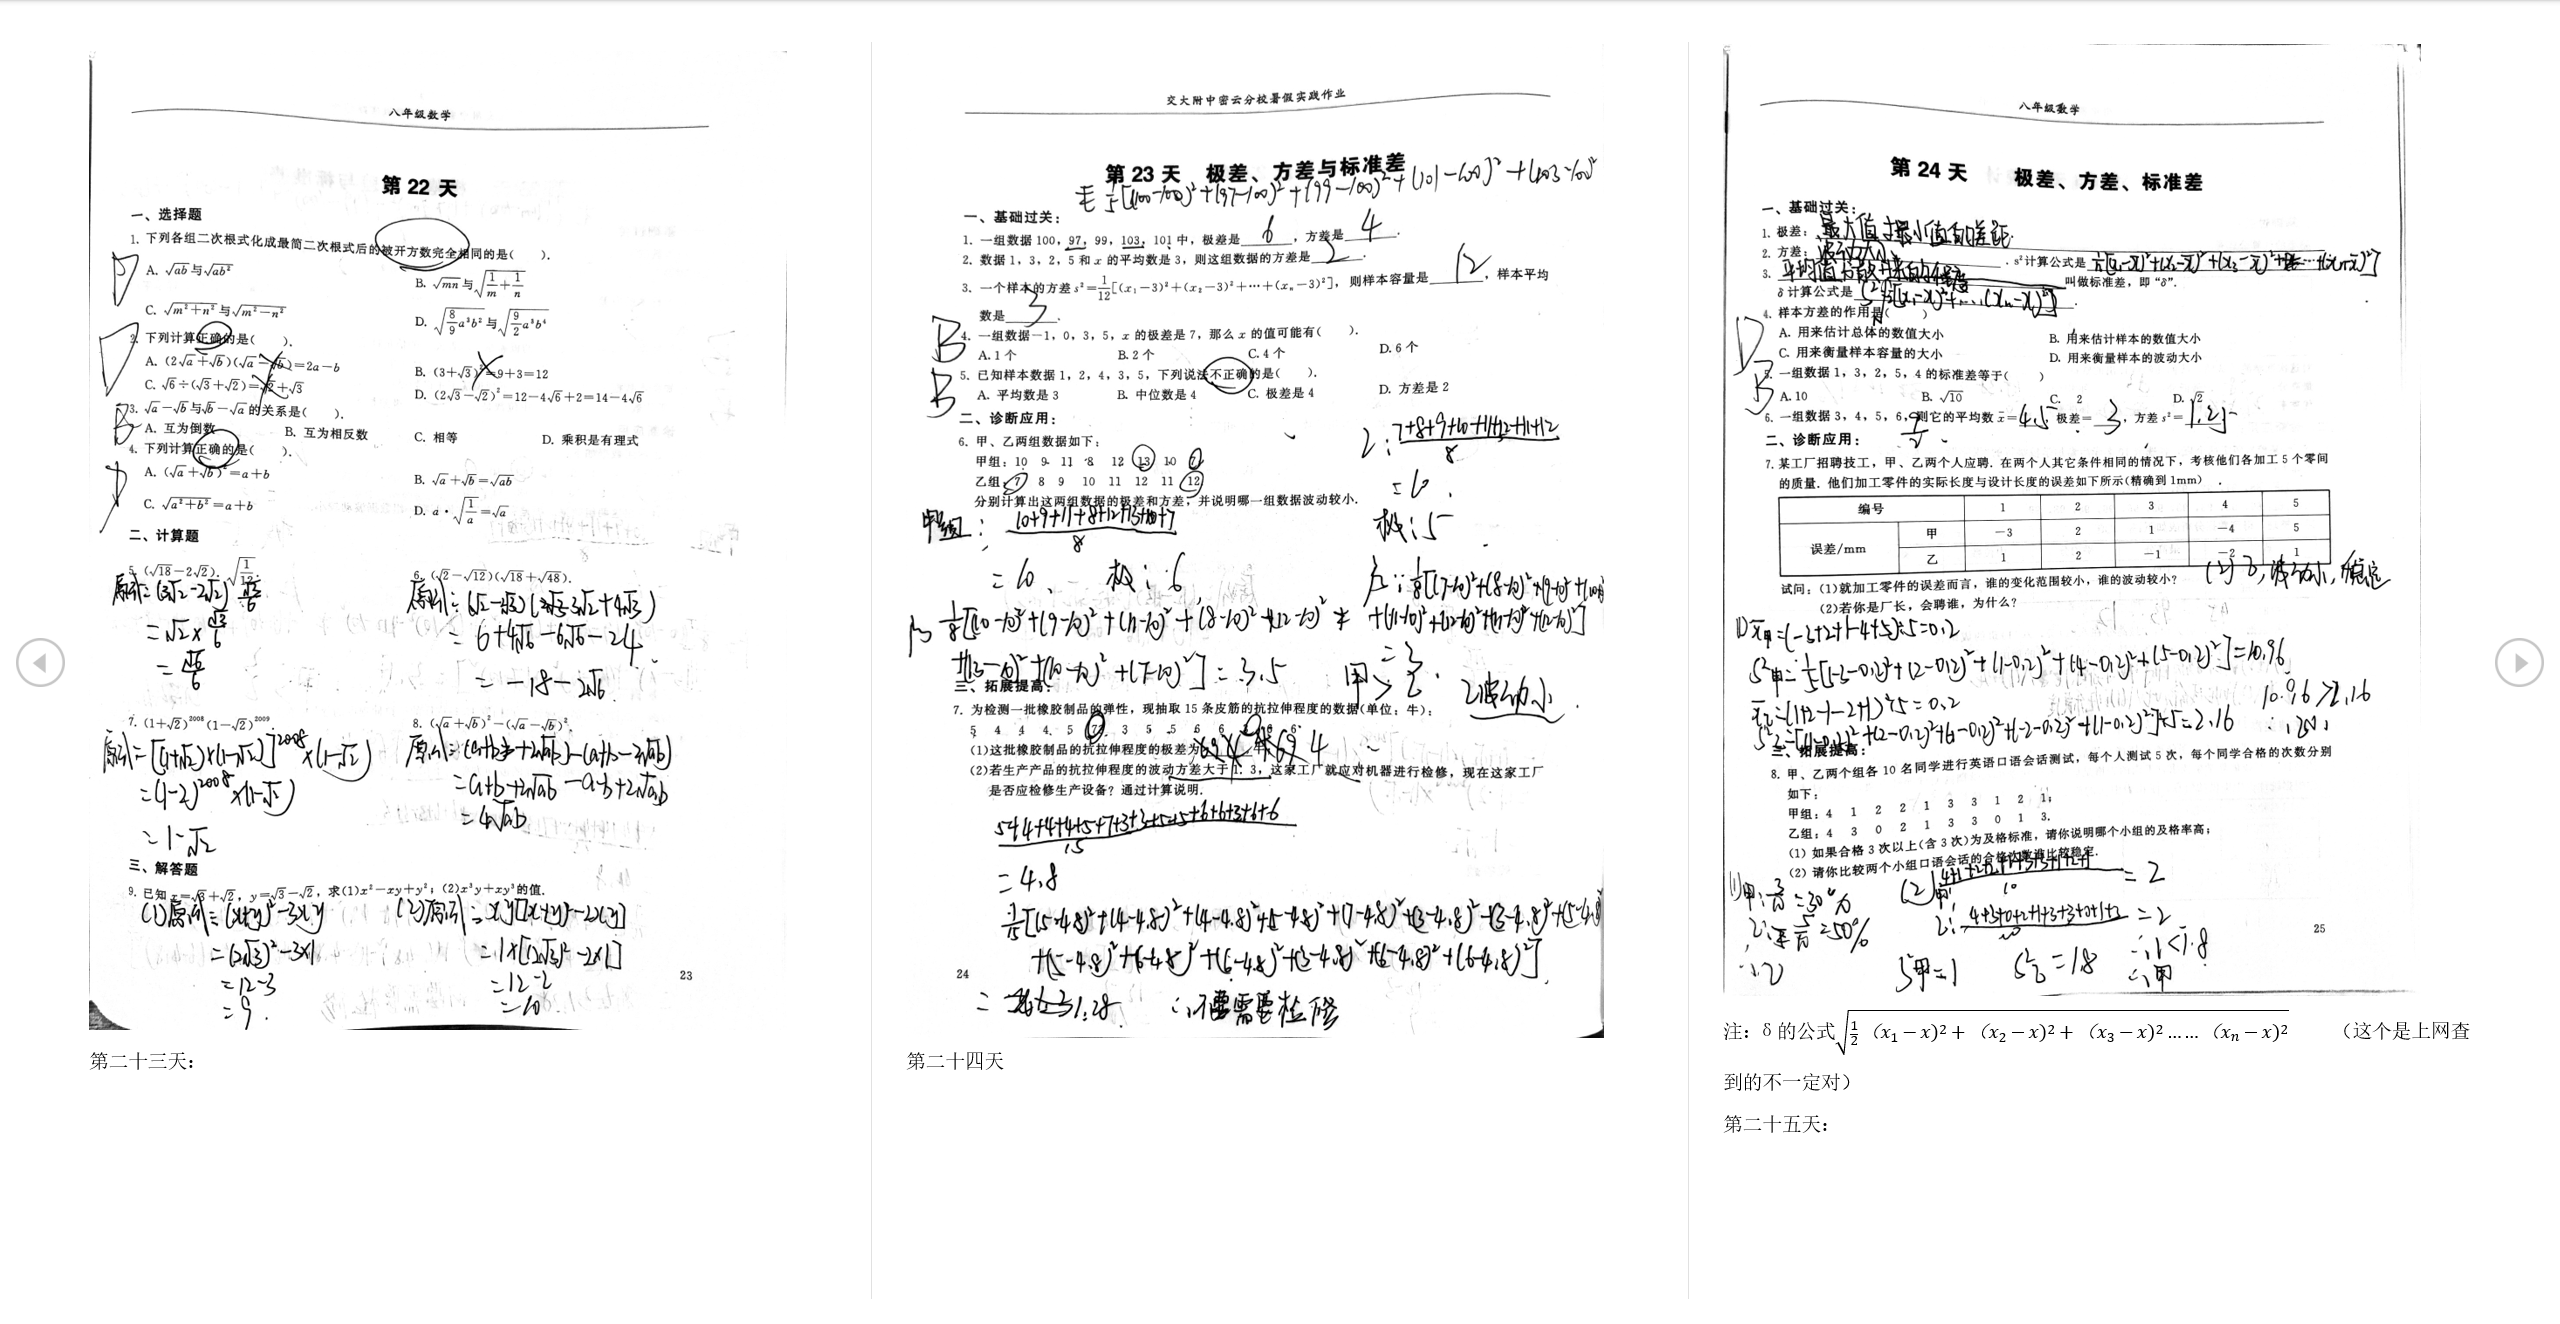 八年级数学
第 22 天
一、选择题
1. 下列各组二次根式化成最简二次根式后的被开方数完全相同的是(  ).
D
A. √ab与√ab²
B. √mn与√(1/m+1/n)
C. √(m²+n²)与√(m²-n²)
D. √(8/9 a³b²)与√(9/2 a³b⁴)
D
2. 下列计算正确的是(  ).
A. (2√a+√b)(√a-√b)=2a-b
B. (3+√3)²=9+3=12
C. √6÷(√3+√2)=√2+√3
D. (2√3-√2)²=12-4√6+2=14-4√6
B
3. √a-√b与√b-√a的关系是(  ).
A. 互为倒数
B. 互为相反数
C. 相等
D. 乘积是有理式
4. 下列计算正确的是(  ).
A. (√a+√b)²=a+b
B. √a+√b=√ab
C. √(a²+b²)=a+b
D. a·√(1/a)=√a
二、计算题
5. (√18-2√2)·√(1/12).
原式=(3√2-2√2)·√3/6
=√2×√3/6
=√6/6
6. (√2-√12)(√18+√48).
=6+4√6-6√6-24
=-18-2√6
7. (1+√2)²⁰⁰⁸(1-√2)²⁰⁰⁹.
原式=[(1+√2)×(1-√2)]²⁰⁰⁸×(1-√2)
=(1-2)²⁰⁰⁸×(1-√2)
=1-√2
8. (√a+√b)²-(√a-√b)².
原式=(a+b+2√ab)-(a+b-2√ab)
=a+b+2√ab-a-b+2√ab
=4√ab
三、解答题
9. 已知 x=√3+√2, y=√3-√2, 求(1)x²-xy+y²; (2)x³y+xy³的值.
(1)原式=(x+y)²-3xy
=(2√3)²-3×1
=12-3
=9.
(2)原式=xy[(x+y)²-2xy]
=1×[(2√3)²-2×1]
=12-2
=10
23
第二十三天：
交大附中密云分校暑假实践作业
第 23 天 极差、方差与标准差
1/5[(100-100)²+(97-100)²+(99-100)²+(101-100)²+(103-100)²
一、基础过关:
1. 一组数据 100, 97, 99, 103, 101 中, 极差是 6 , 方差是 4 .
2. 数据 1, 3, 2, 5 和 x 的平均数是 3, 则这组数据的方差是 2 .
3. 一个样本的方差 s²=1/12[(x₁-3)²+(x₂-3)²+…+(xₙ-3)²], 则样本容量是 12 , 样本平均
数是 3 .
B
4. 一组数据-1, 0, 3, 5, x 的极差是 7, 那么 x 的值可能有(  ).
A. 1 个
B. 2 个
C. 4 个
D. 6 个
B
5. 已知样本数据 1, 2, 4, 3, 5, 下列说法不正确的是(  ).
A. 平均数是 3
B. 中位数是 4
C. 极差是 4
D. 方差是 2
二、诊断应用:
6. 甲、乙两组数据如下:
甲组: 10 9 11 8 12 13 10 7
乙组: 7 8 9 10 11 12 11 12
分别计算出这两组数据的极差和方差, 并说明哪一组数据波动较小.
甲组: (10+9+11+8+12+13+10+7)/8
=10. 极: 6
1/8[(10-10)²+(9-10)²+(11-10)²+(8-10)²+(12-10)²
+(13-10)²+(10-10)²+(7-10)²]=3.5
乙: (7+8+9+10+11+12+11+12)/8
=10.
极: 5
1/8[(7-10)²+(8-10)²+(9-10)²+(10-10)²
+(11-10)²+(12-10)²+(11-10)²+(12-10)²]
=3.
甲>乙
乙波动小.
三、拓展提高:
7. 为检测一批橡胶制品的弹性, 现抽取 15 条皮筋的抗拉伸程度的数据(单位: 牛):
5 4 4 4 5 7 3 3 5 5 6 6 3 6 6
(1)这批橡胶制品的抗拉伸程度的极差为 4
(2)若生产产品的抗拉伸程度的波动方差大于 1.3, 这家工厂就应对机器进行检修, 现在这家工厂
是否应检修生产设备? 通过计算说明.
(5+4+4+4+5+7+3+3+5+5+6+6+3+6+6)/15
=4.8
=1.28 ∴不需要检修
24
第二十四天
八年级数学
第 24 天 极差、方差、标准差
一、基础过关:
1. 极差: 最大值与最小值的差距.
2. 方差: 波动大小 . s²计算公式是
3. 叫做标准差, 即“δ”.
δ计算公式是
D
4. 样本方差的作用是(  )
A. 用来估计总体的数值大小
B. 用来估计样本的数值大小
C. 用来衡量样本容量的大小
D. 用来衡量样本的波动大小
B
5. 一组数据 1, 3, 2, 5, 4 的标准差等于(  )
A. 10
B. √10
C. 2
D. √2
6. 一组数据 3, 4, 5, 6, 则它的平均数 x̄= 4.5 极差= 3 , 方差 s²= 1.25
9/2
二、诊断应用:
7. 某工厂招聘技工, 甲、乙两个人应聘. 在两个人其它条件相同的情况下, 考核他们各加工 5 个零间
的质量. 他们加工零件的实际长度与设计长度的误差如下所示(精确到 1mm) .
编号 1 2 3 4 5
误差/mm
甲 -3 2 1 -4 5
乙 1 2 -1 -2 1
试问: (1)就加工零件的误差而言, 谁的变化范围较小, 谁的波动较小?
(2)若你是厂长, 会聘谁, 为什么?
(2)乙, 波动小, 稳定
(1)x̄甲=(-3+2+1-4+5)÷5=0.2
S²甲=1/5[(-3-0.2)²+(2-0.2)²+(1-0.2)²+(4-0.2)²+(5-0.2)²]=10.96
x̄乙=(1+2-1-2+1)÷5=0.2
10.96>2.16
三、拓展提高:
8. 甲、乙两个组各 10 名同学进行英语口语会话测试, 每个人测试 5 次, 每个同学合格的次数分别
如下:
甲组: 4 1 2 2 1 3 3 1 2 1;
乙组: 4 3 0 2 1 3 3 0 1 3.
(1) 如果合格 3 次以上(含 3 次)为及格标准, 请你说明哪个小组的及格率高;
(2) 请你比较两个小组口语会话的合格次数谁比较稳定.
(1)甲: 3/10=30%
乙: 5/10=50%
∴乙
=2
=2
S²甲=1 S²乙=1.8
∴1<1.8
∴甲
25
注：δ的公式√(1/2（x₁−x)²+（x₂−x)²+（x₃−x)²……（xₙ−x)²） （这个是上网查
到的不一定对）
第二十五天：